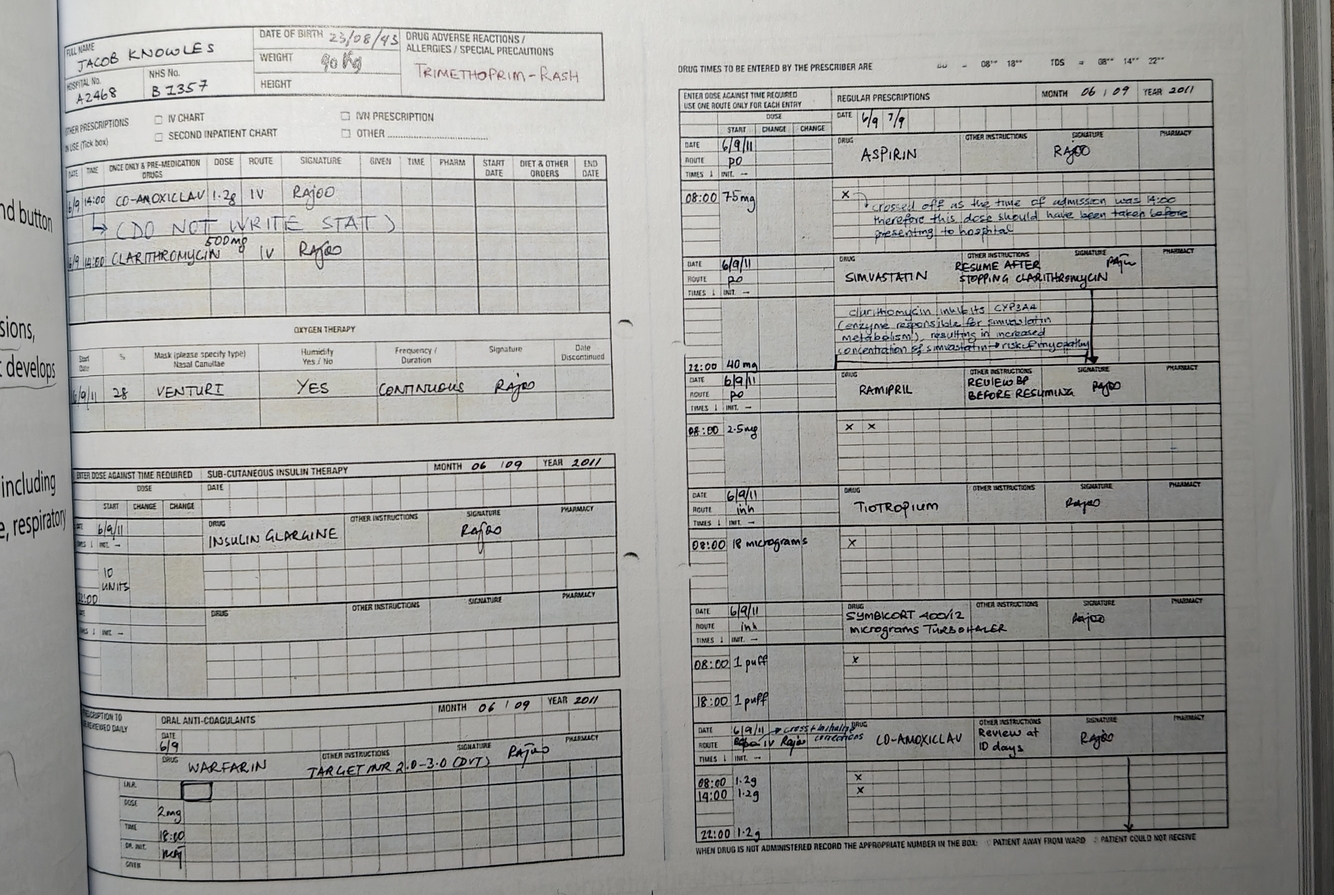 nd button
sions,
t develops
including
e, respiratory
FULL NAME
JACOB KNOWLES
HOSPITAL No.
A2468
NHS No.
B1357
DATE OF BIRTH 23/08/43
WEIGHT 90 Kg
HEIGHT
DRUG ADVERSE REACTIONS /
ALLERGIES / SPECIAL PRECAUTIONS
TRIMETHOPRIM - RASH
OTHER PRESCRIPTIONS
IN USE (Tick box)
IV CHART
SECOND INPATIENT CHART
IVN PRESCRIPTION
OTHER
DATE TIME ONCE ONLY & PRE-MEDICATION DRUGS DOSE ROUTE SIGNATURE GIVEN TIME PHARM START DATE DIET & OTHER ORDERS END DATE
6/9 14:00 CO-AMOXICLAV 1.2g IV RAJOO
↳ (DO NOT WRITE STAT)
6/9 14:00 CLARITHROMYCIN 500mg IV RAJOO
OXYGEN THERAPY
Start Date % Mask (please specify type) Nasal Canullae Humidity Yes / No Frequency / Duration Signature Date Discontinued
6/9/11 28 VENTURI YES CONTINUOUS RAJOO
ENTER DOSE AGAINST TIME REQUIRED SUB-CUTANEOUS INSULIN THERAPY MONTH 06 / 09 YEAR 2011
DOSE DATE
START CHANGE CHANGE
6/9/11 DRUG INSULIN GLARGINE OTHER INSTRUCTIONS SIGNATURE RAJOO PHARMACY
TIMES ↓ INIT. →
10
UNITS
DRUG OTHER INSTRUCTIONS SIGNATURE PHARMACY
TIMES ↓ INIT. →
ORAL ANTI-COAGULANTS MONTH 06 / 09 YEAR 2011
REVIEWED DAILY
DATE
6/9
DRUG WARFARIN OTHER INSTRUCTIONS TARGET INR 2.0-3.0 (DVT) SIGNATURE RAJOO PHARMACY
I.N.R.
DOSE 2mg
TIME 18:00
DR. INIT.
GIVEN
DRUG TIMES TO BE ENTERED BY THE PRESCRIBER ARE BD = 08°° 18°° TDS = 08°° 14°° 22°°
ENTER DOSE AGAINST TIME REQUIRED
USE ONE ROUTE ONLY FOR EACH ENTRY
REGULAR PRESCRIPTIONS MONTH 06 / 09 YEAR 2011
DOSE
START CHANGE CHANGE DATE 6/9 7/9
DATE 6/9/11
ROUTE PO
TIMES ↓ INIT. →
DRUG ASPIRIN OTHER INSTRUCTIONS SIGNATURE RAJOO PHARMACY
08:00 75mg X
crossed off as the time of admission was 14:00
therefore this dose should have been taken before
presenting to hospital
DATE 6/9/11
ROUTE PO
TIMES ↓ INIT. →
DRUG SIMVASTATIN OTHER INSTRUCTIONS RESUME AFTER STOPPING CLARITHROMYCIN SIGNATURE RAJOO PHARMACY
clarithromycin inhibits CYP3A4
(enzyme responsible for simvastatin
metabolism), resulting in increased
concentration of simvastatin → risk of myopathy
22:00 40 mg
DATE 6/9/11
ROUTE PO
TIMES ↓ INIT. →
DRUG RAMIPRIL OTHER INSTRUCTIONS REVIEW BP BEFORE RESUMING SIGNATURE RAJOO PHARMACY
08:00 2.5mg X X
DATE 6/9/11
ROUTE inh
TIMES ↓ INIT. →
DRUG TIOTROPIUM OTHER INSTRUCTIONS SIGNATURE RAJOO PHARMACY
08:00 18 micrograms X
DATE 6/9/11
ROUTE inh
TIMES ↓ INIT. →
DRUG SYMBICORT 400/12 micrograms TURBOHALER OTHER INSTRUCTIONS SIGNATURE RAJOO PHARMACY
08:00 1 puff X
18:00 1 puff
DATE 6/9/11 → cross + initialing corrections
ROUTE IV Rajoo
TIMES ↓ INIT. →
DRUG CO-AMOXICLAV OTHER INSTRUCTIONS Review at 10 days SIGNATURE RAJOO PHARMACY
08:00 1.2g X
14:00 1.2g X
22:00 1.2g
WHEN DRUG IS NOT ADMINISTERED RECORD THE APPROPRIATE NUMBER IN THE BOX: PATIENT AWAY FROM WARD PATIENT COULD NOT RECEIVE